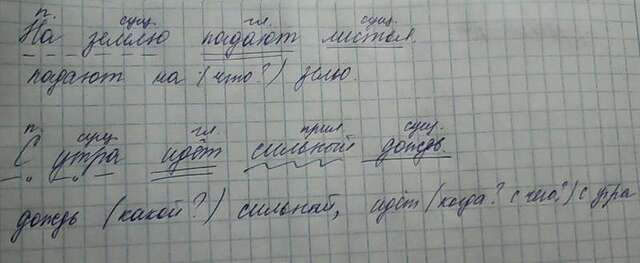 п. сущ. гл. сущ.
На землю падают листья.
падают на (что?) землю.
п. сущ. гл. прил. сущ.
С утра идёт сильный дождь.
дождь (какой?) сильный, идёт (когда? с чего?) с утра